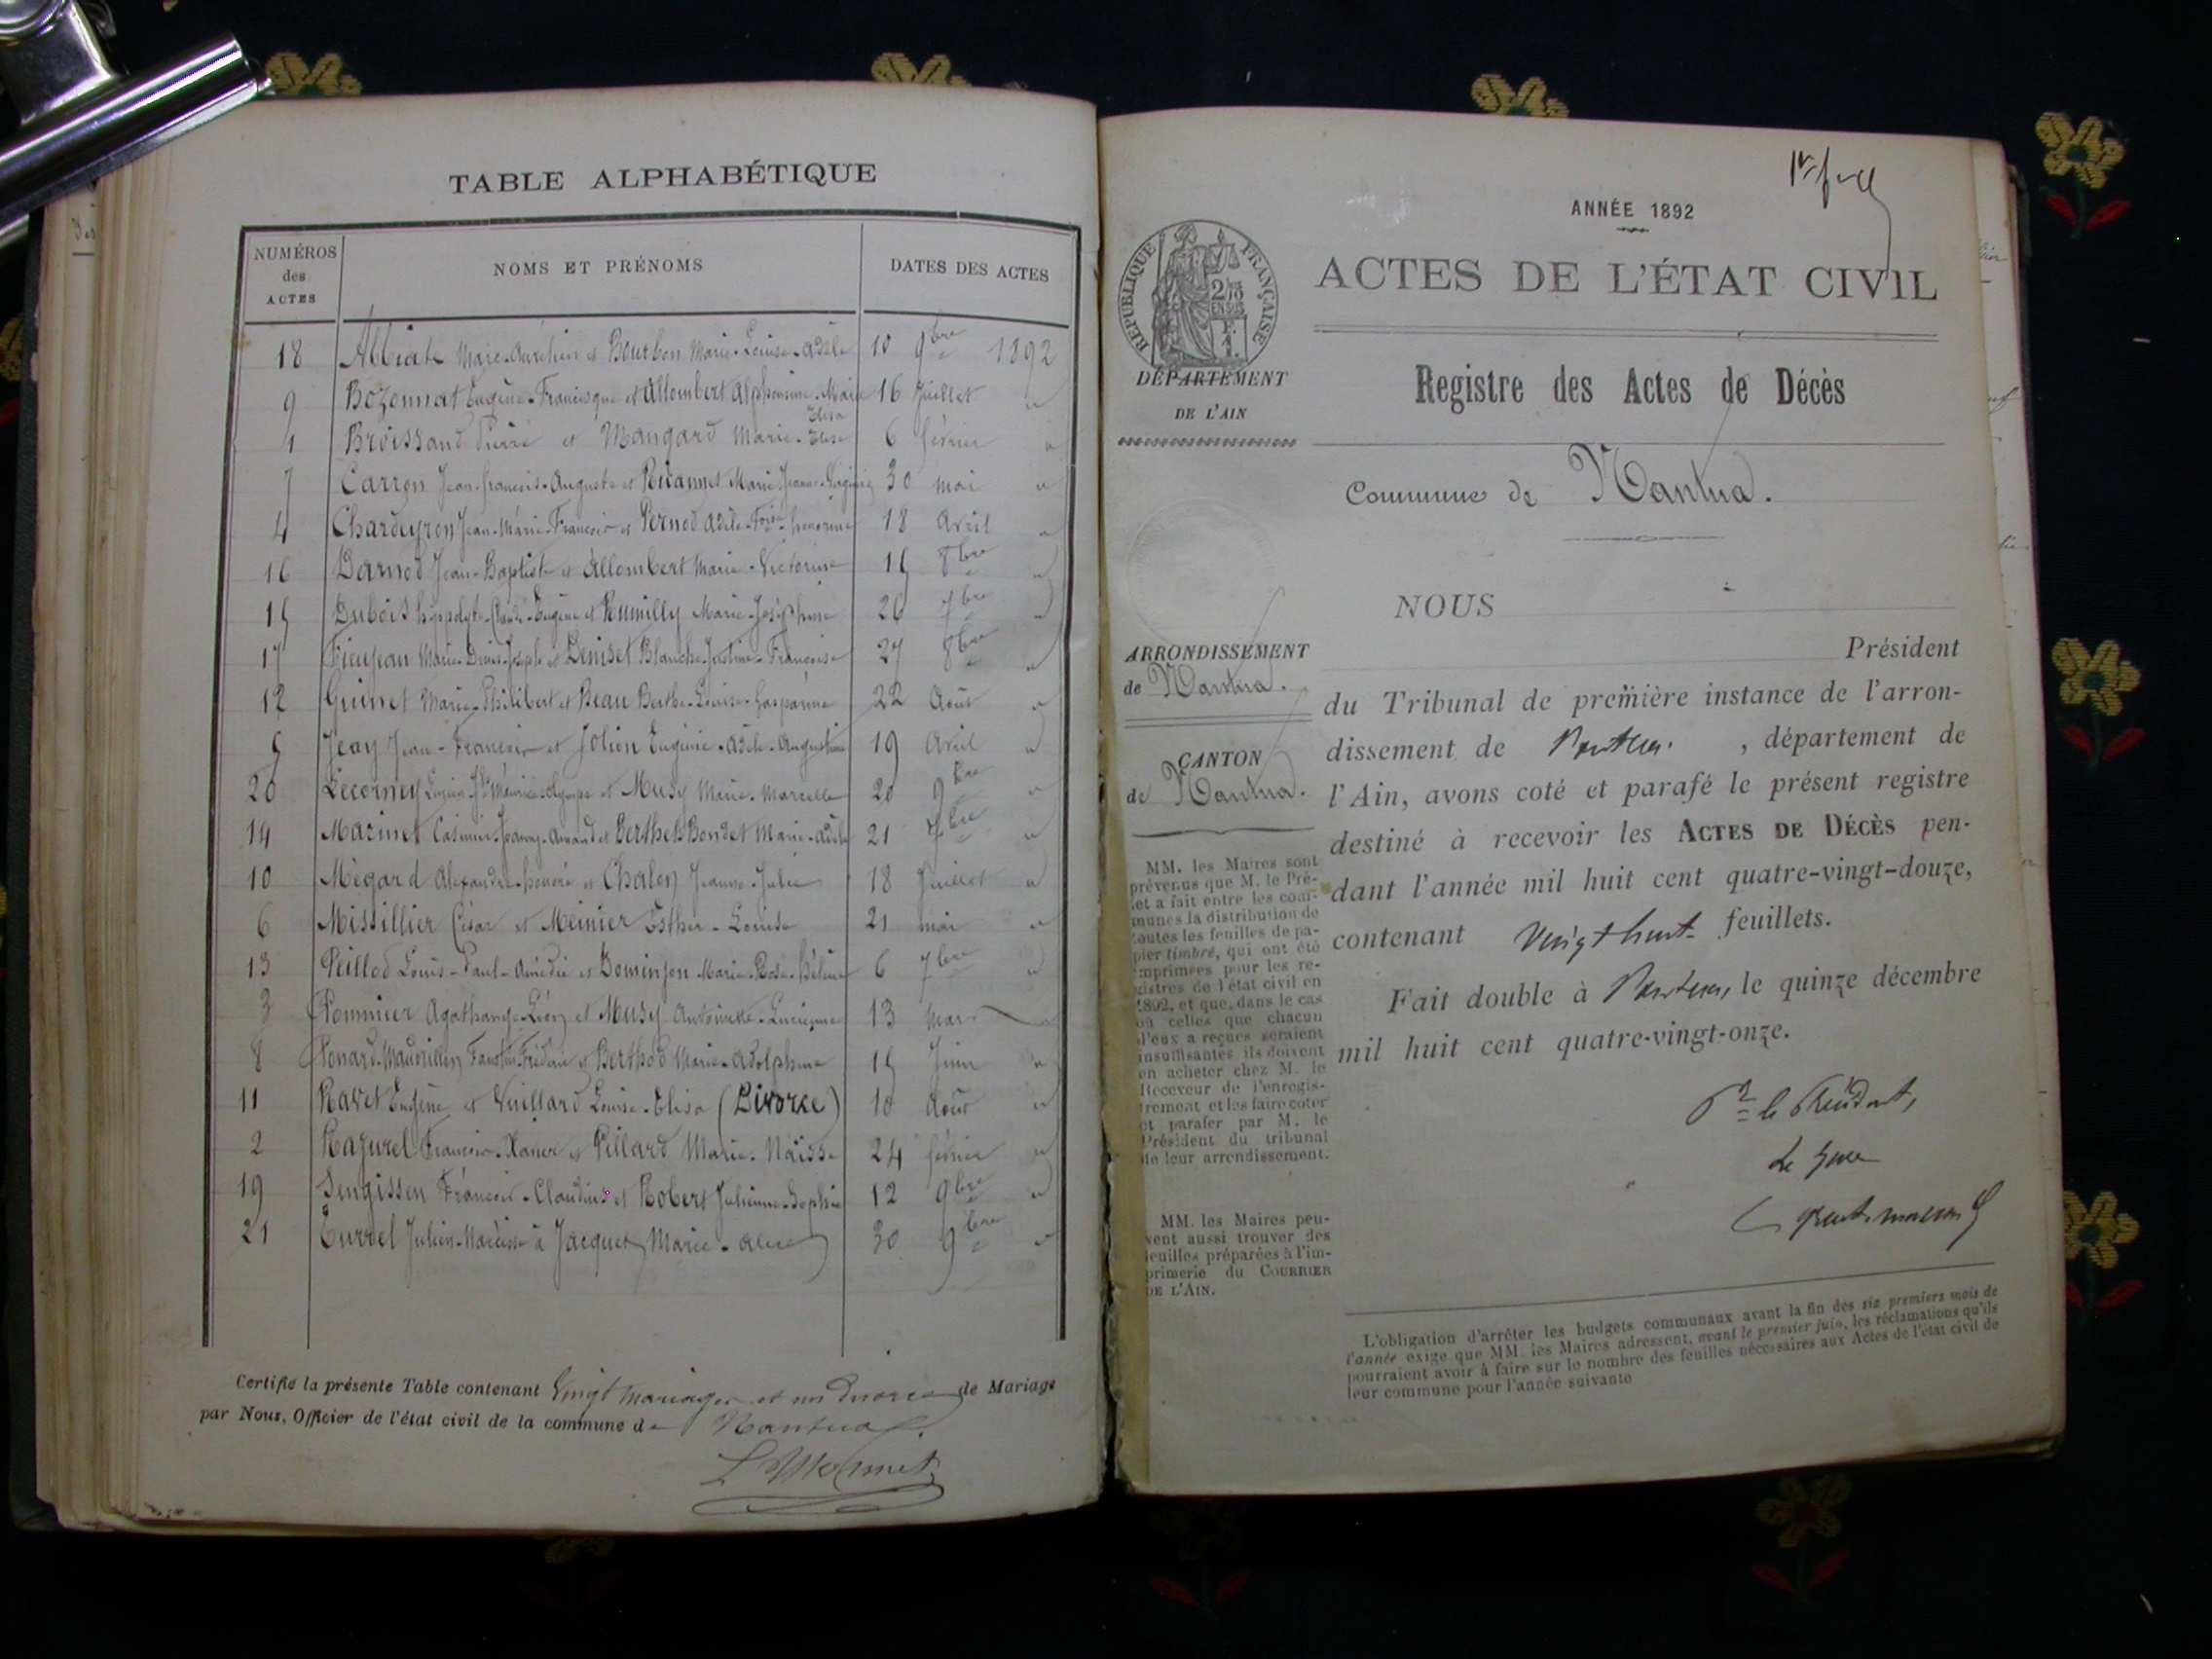 TABLE ALPHABÉTIQUE
NUMÉROS des ACTES NOMS ET PRÉNOMS DATES DES ACTES
18 Abbiate Marc-Aurélien et Bourbon Marie-Louise-Adèle 10 9bre 1892
9 Bozonnat Eugène-Francisque et Allombert Alphonsine-Marie 16 Juillet "
1 Broissand Pierre et Mangard Marie-Elise Elisa 6 février "
7 Carron Jean-françois-Auguste et Marie Jeanne 30 mai "
4 Chardeyron Jean-Marie-François et Pernod Adèle-Foise-honorine 18 Avril "
16 Darnod Jean-Baptiste et Allombert Marie-Victorine 15 8bre "
15 Dubois hippolyte-Claude-Eugène et Rumilly Marie-Joséphine 26 7bre "
17 Fieujean Marie-Denis-Joseph et Deniset Blanche-Justine-Françoise 27 8bre "
12 Guinet Marie-Philibert et Beau Berthe-Louise-Gasparine 22 Août "
5 Jeay Jean-François et Jolion Eugénie-Adèle-Augustine 19 Avril "
20 Lecorney et Musy Marie-Marcelle 20 9bre "
14 Marinet Casimir Armand et Berthet-Bondet Marie-Adèle 21 7bre "
10 Mégard Alexandre-honoré et Chalon Jeanne-Julie 18 Juillet "
6 Missillier César et Meinier Esther-Louise 21 mai "
13 Peillod Louis-Paul-Amédée et Dominjon Marie-Rose-Hélène 6 7bre "
3 Pommier Agathange-Léon et Musy Antoinette-Lucienne 13 Mars "
8 Ponard-Maudrillon Faustin Frédéric et Berthod Marie-Adolphine 15 Juin "
11 Ravet Eugène et Vuillard Louise-Elisa (Divorce) 10 Août "
2 Razurel François-Xavier et Pillard Marie-Naïsse 24 février "
19 Sengissen François-Claudius et Robert Julienne-Sophie 12 9bre "
21 Turrel Julien-Narcisse à Jacquet Marie-Alice 30 9bre "
Certifié la présente Table contenant Vingt mariages et un divorce de Mariage
par Nous, Officier de l'état civil de la commune de Nantua
ANNÉE 1892
RÉPUBLIQUE FRANÇAISE
2/10 EN SUS
ACTES DE L'ÉTAT CIVIL
DÉPARTEMENT
DE L'AIN
Registre des Actes de Décès
Commune de Nantua.
NOUS
Président
ARRONDISSEMENT
de Nantua.
CANTON
de Nantua.
du Tribunal de première instance de l'arron-
dissement de Nantua, département de
l'Ain, avons coté et parafé le présent registre
destiné à recevoir les ACTES DE DÉCÈS pen-
dant l'année mil huit cent quatre-vingt-douze,
contenant Vingt huit feuillets.
Fait double à Nantua, le quinze décembre
mil huit cent quatre-vingt-onze.
Pr le Président,
Le Juge
MM. les Maires sont
prévenus que M. le Pré-
et a fait entre les com-
munes la distribution de
toutes les feuilles de pa-
pier timbré, qui ont été
imprimées pour les re-
gistres de l'état civil en
1892, et que, dans le cas
où celles que chacun
d'eux a reçues seraient
insuffisantes ils doivent
en acheter chez M. le
Receveur de l'enregis-
trement et les faire coter
et parafer par M. le
Président du tribunal
de leur arrondissement.
MM. les Maires peu-
vent aussi trouver des
feuilles préparées à l'im-
primerie du COURRIER
DE L'AIN.
L'obligation d'arrêter les budgets communaux avant la fin des six premiers mois de
l'année exige que MM. les Maires adressent, avant le premier juin, les réclamations qu'ils
pourraient avoir à faire sur le nombre des feuilles nécessaires aux Actes de l'état civil de
leur commune pour l'année suivante